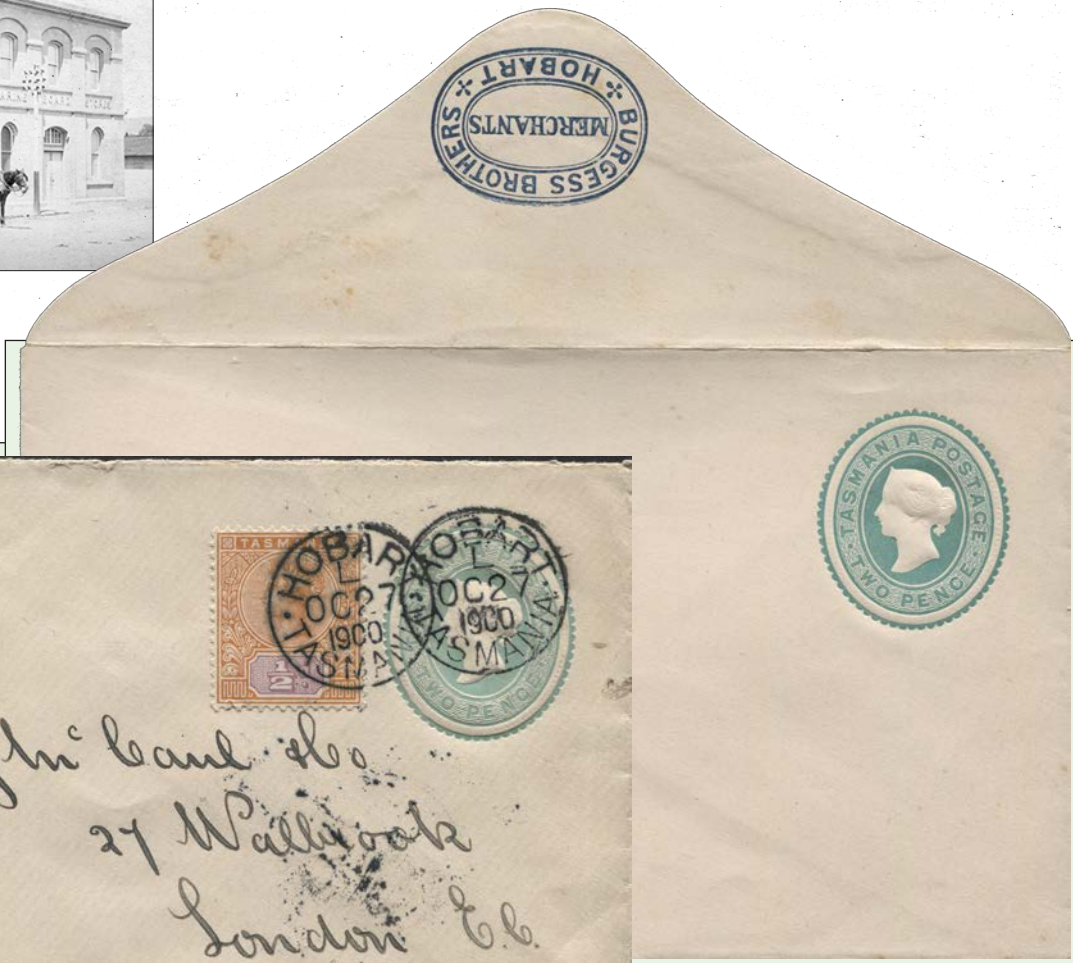 MARINE BOARD STORE
BURGESS BROTHERS
HOBART
MERCHANTS
TASMANIA POSTAGE
TWO PENCE
TASM
1/2 D
HOBART
L
OC 27
1900
TASMANIA
HOBART
L
OC 2
1900
TASMANIA
TWO PENCE
Mc Caul & Co
27 Wallbrook
London E.C.